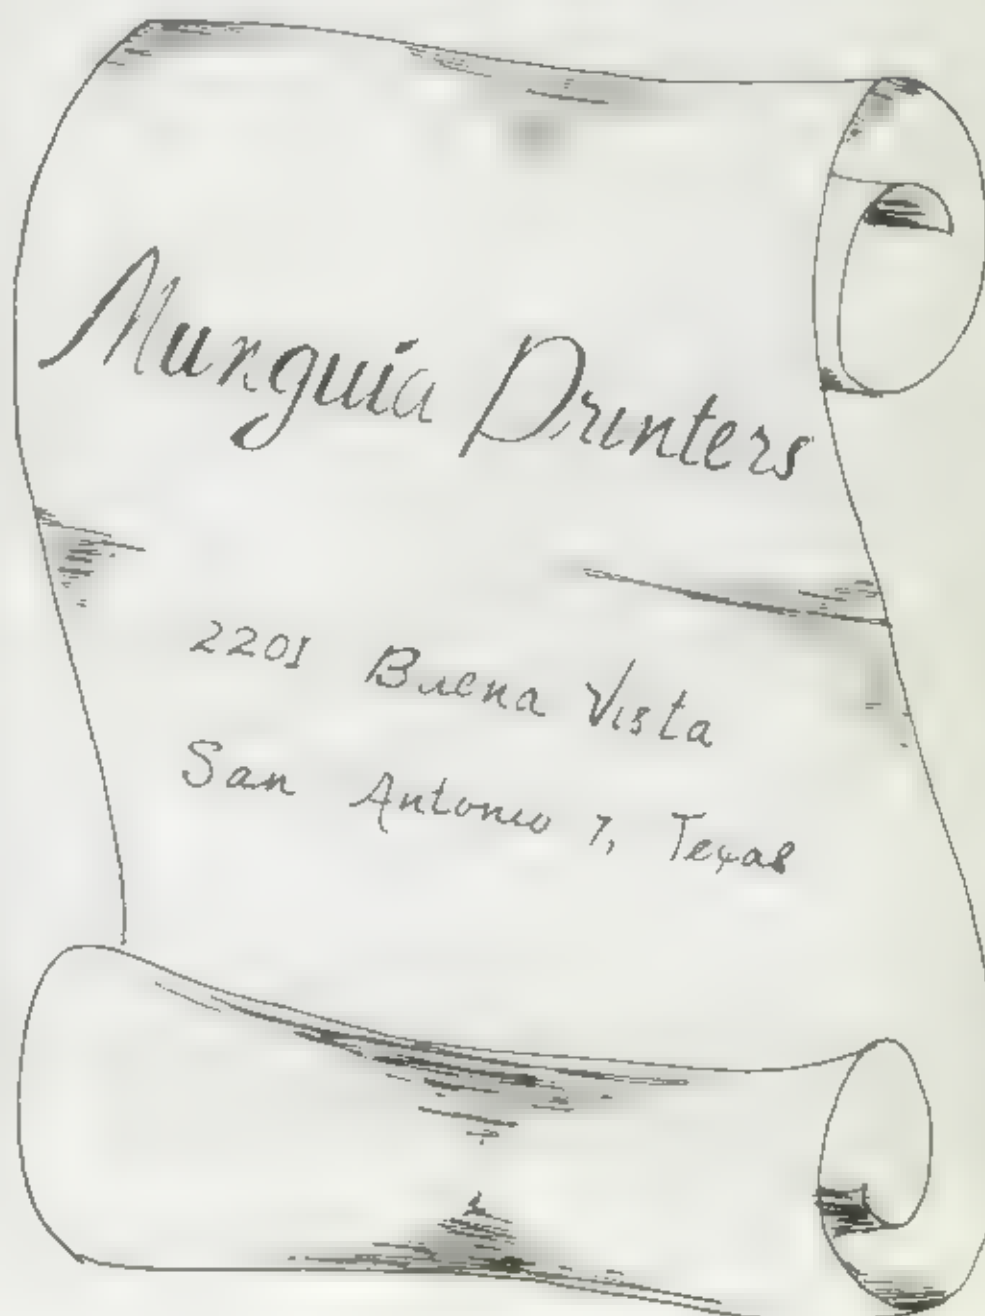 Munguia Printers
2201 Buena Vista
San Antonio 7, Texas